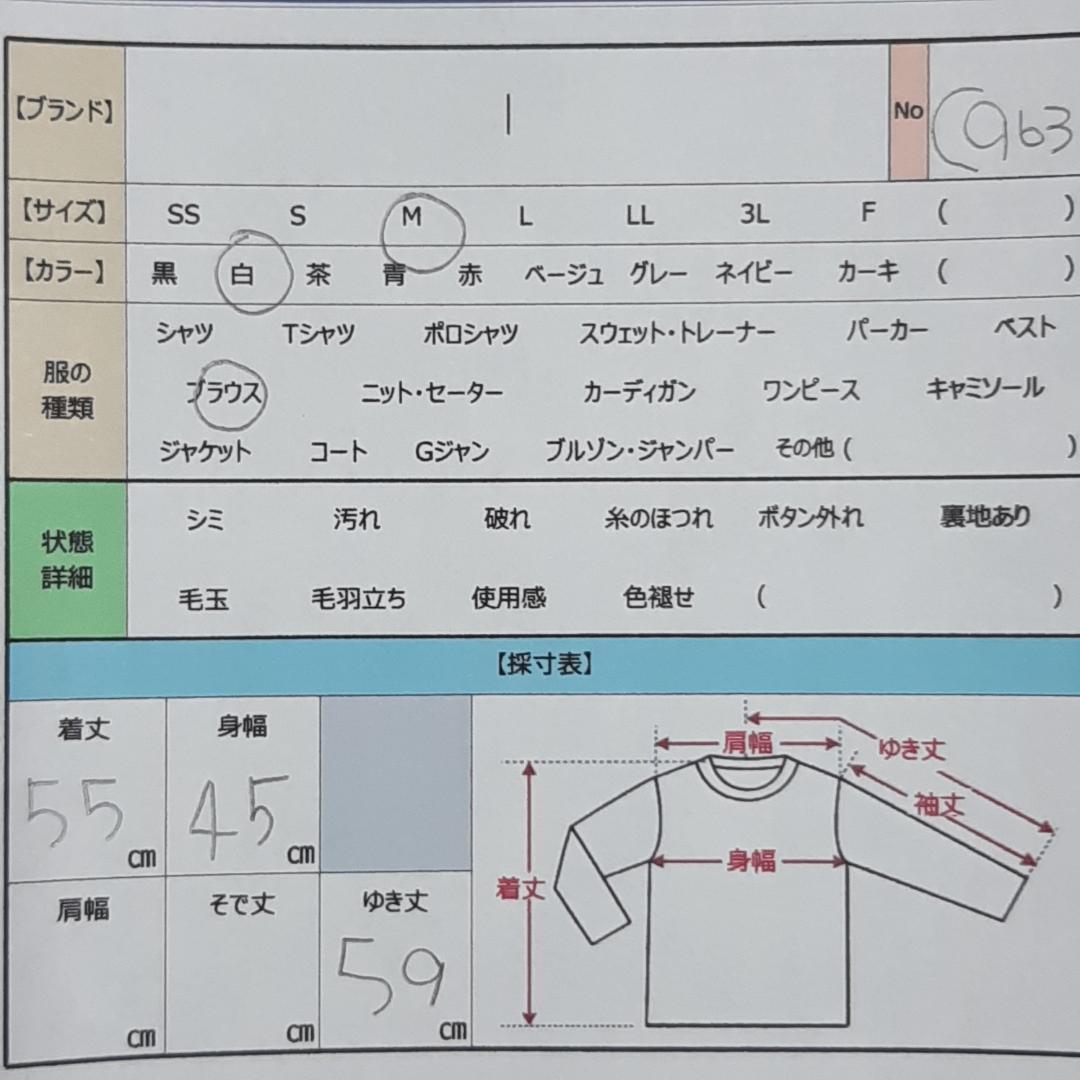 【ブランド】 | No (963
【サイズ】 SS S M L LL 3L F ( )
【カラー】 黒 白 茶 青 赤 ベージュ グレー ネイビー カーキ ( )
服の種類
シャツ Tシャツ ポロシャツ スウェット・トレーナー パーカー ベスト
ブラウス ニット・セーター カーディガン ワンピース キャミソール
ジャケット コート Gジャン ブルゾン・ジャンパー その他 ( )
状態詳細
シミ 汚れ 破れ 糸のほつれ ボタン外れ 裏地あり
毛玉 毛羽立ち 使用感 色褪せ ( )
【採寸表】
着丈 身幅
55 cm 45 cm
肩幅 そで丈 ゆき丈
cm cm 59 cm
肩幅 ゆき丈
袖丈
身幅
着丈